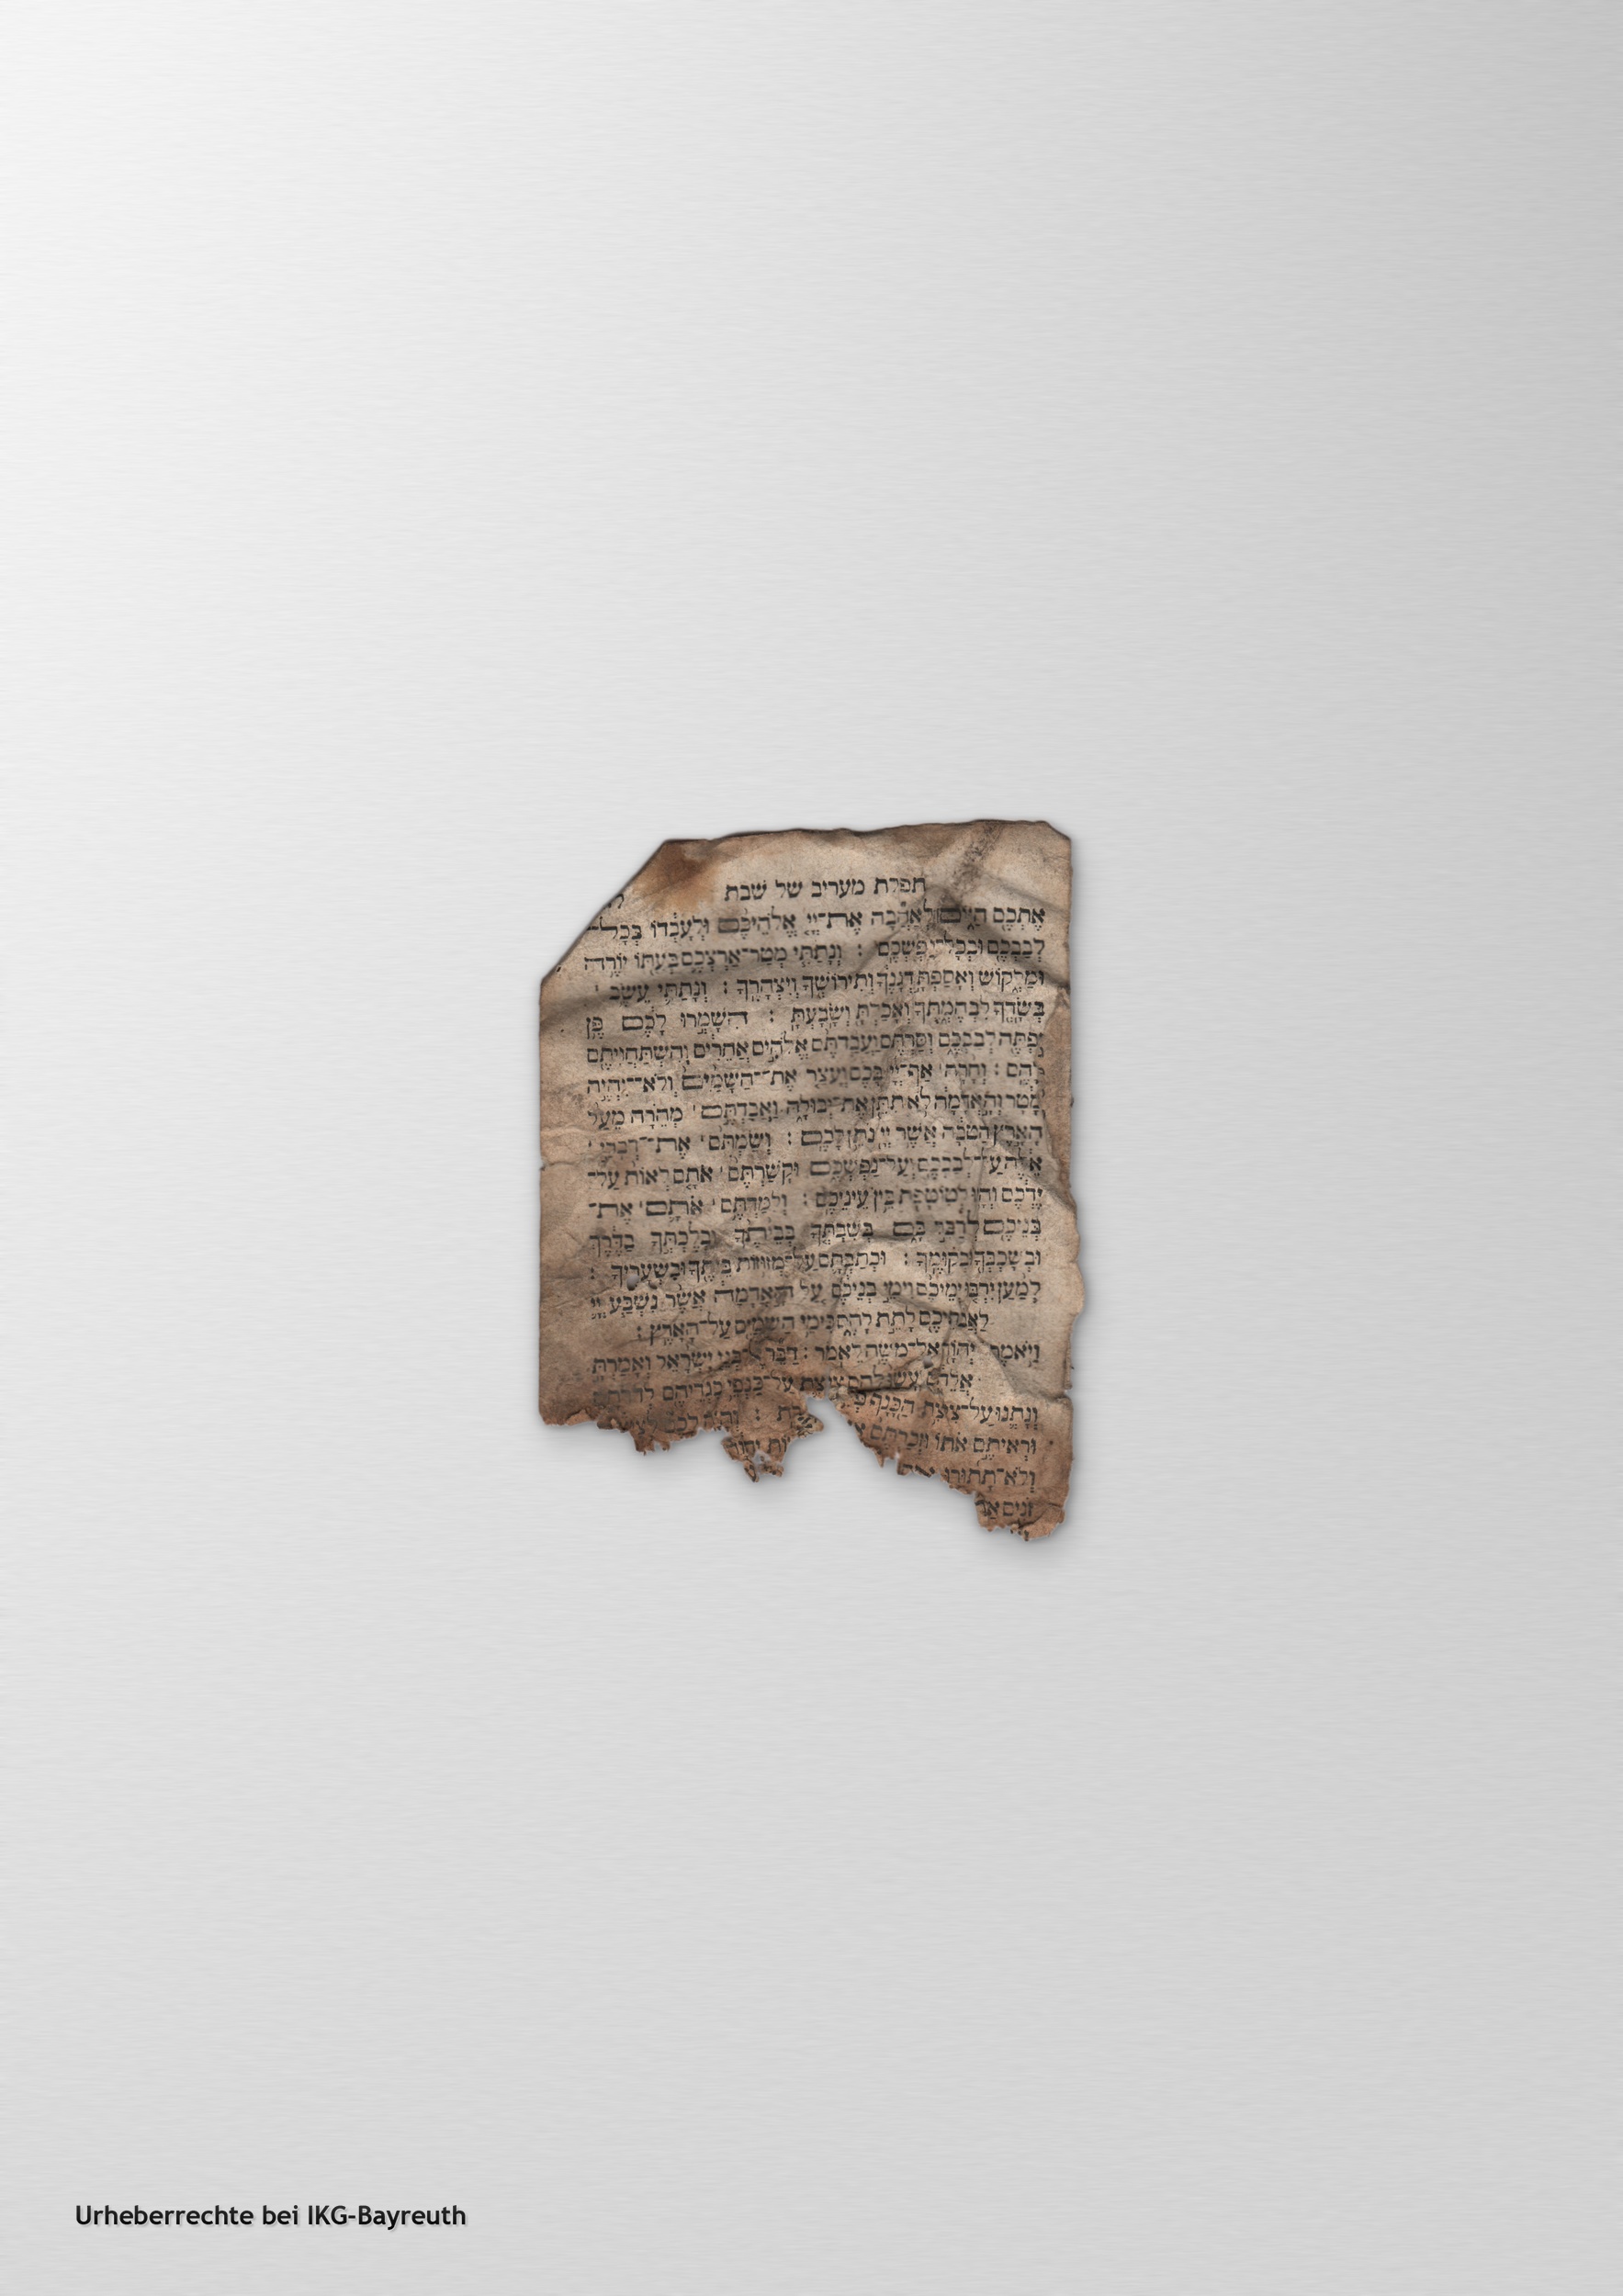 תפלת מעריב של שבת
אֶתְכֶם הַיּוֹם לְאַהֲבָה אֶת־יְיָ אֱלֹהֵיכֶם וּלְעָבְדוֹ בְּכָל־
לְבַבְכֶם וּבְכָל־נַפְשְׁכֶם : וְנָתַתִּי מְטַר־אַרְצְכֶם בְּעִתּוֹ יוֹרֶה
וּמַלְקוֹשׁ וְאָסַפְתָּ דְגָנֶךָ וְתִירוֹשְׁךָ וְיִצְהָרֶךָ : וְנָתַתִּי עֵשֶׂב
בְּשָׂדְךָ לִבְהֶמְתֶּךָ וְאָכַלְתָּ וְשָׂבָעְתָּ : הִשָּׁמְרוּ לָכֶם פֶּן
יִפְתֶּה לְבַבְכֶם וְסַרְתֶּם וַעֲבַדְתֶּם אֱלֹהִים אֲחֵרִים וְהִשְׁתַּחֲוִיתֶם
לָהֶם : וְחָרָה אַף־יְיָ בָּכֶם וְעָצַר אֶת־הַשָּׁמַיִם וְלֹא־יִהְיֶה
מָטָר וְהָאֲדָמָה לֹא תִתֵּן אֶת־יְבוּלָהּ וַאֲבַדְתֶּם מְהֵרָה מֵעַל
הָאָרֶץ הַטֹּבָה אֲשֶׁר יְיָ נֹתֵן לָכֶם : וְשַׂמְתֶּם אֶת־דְּבָרַי
אֵלֶּה עַל־לְבַבְכֶם וְעַל־נַפְשְׁכֶם וּקְשַׁרְתֶּם אֹתָם לְאוֹת עַל־
יֶדְכֶם וְהָיוּ לְטוֹטָפֹת בֵּין עֵינֵיכֶם : וְלִמַּדְתֶּם אֹתָם אֶת־
בְּנֵיכֶם לְדַבֵּר בָּם בְּשִׁבְתְּךָ בְּבֵיתֶךָ וּבְלֶכְתְּךָ בַדֶּרֶךְ
וּבְשָׁכְבְּךָ וּבְקוּמֶךָ : וּכְתַבְתָּם עַל־מְזוּזוֹת בֵּיתֶךָ וּבִשְׁעָרֶיךָ :
לְמַעַן יִרְבּוּ יְמֵיכֶם וִימֵי בְנֵיכֶם עַל הָאֲדָמָה אֲשֶׁר נִשְׁבַּע יְיָ
לַאֲבֹתֵיכֶם לָתֵת לָהֶם כִּימֵי הַשָּׁמַיִם עַל־הָאָרֶץ :
וַיֹּאמֶר יְהוָֹה אֶל־מֹשֶׁה לֵּאמֹר : דַּבֵּר אֶל־בְּנֵי יִשְׂרָאֵל וְאָמַרְתָּ
אֲלֵהֶם וְעָשׂוּ לָהֶם צִיצִת עַל־כַּנְפֵי בִגְדֵיהֶם לְדֹרֹתָם
וְנָתְנוּ עַל־צִיצִת הַכָּנָף
וּרְאִיתֶם אֹתוֹ וּזְכַרְתֶּם
וְלֹא־תָתוּרוּ
זֹנִים
Urheberrechte bei IKG-Bayreuth